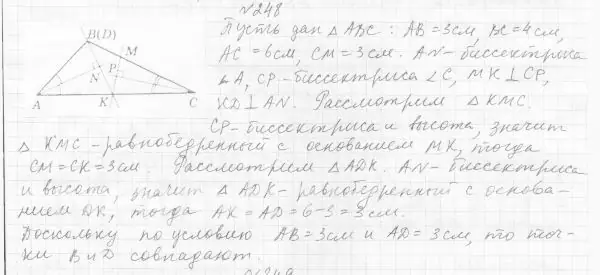 №248
Пусть дан △ ABC : AB = 3см, BC = 4см,
AC = 6см, CM = 3см. AN - биссектриса
∠A, CP - биссектриса ∠C, MK ⊥ CP,
KD ⊥ AN. Рассмотрим △ KMC.
CP - биссектриса и высота, значит
△ KMC - равнобедренный с основанием MK, тогда
CM = CK = 3см. Рассмотрим △ADK. AN - биссектриса
и высота, значит △ ADK - равнобедренный с основа-
нием DK, тогда AK = AD = 6-3 = 3см.
Поскольку по условию AB = 3см и AD = 3см, то точ-
ки B и D совпадают.
B(D)
M
N
P
A
K
C
№249